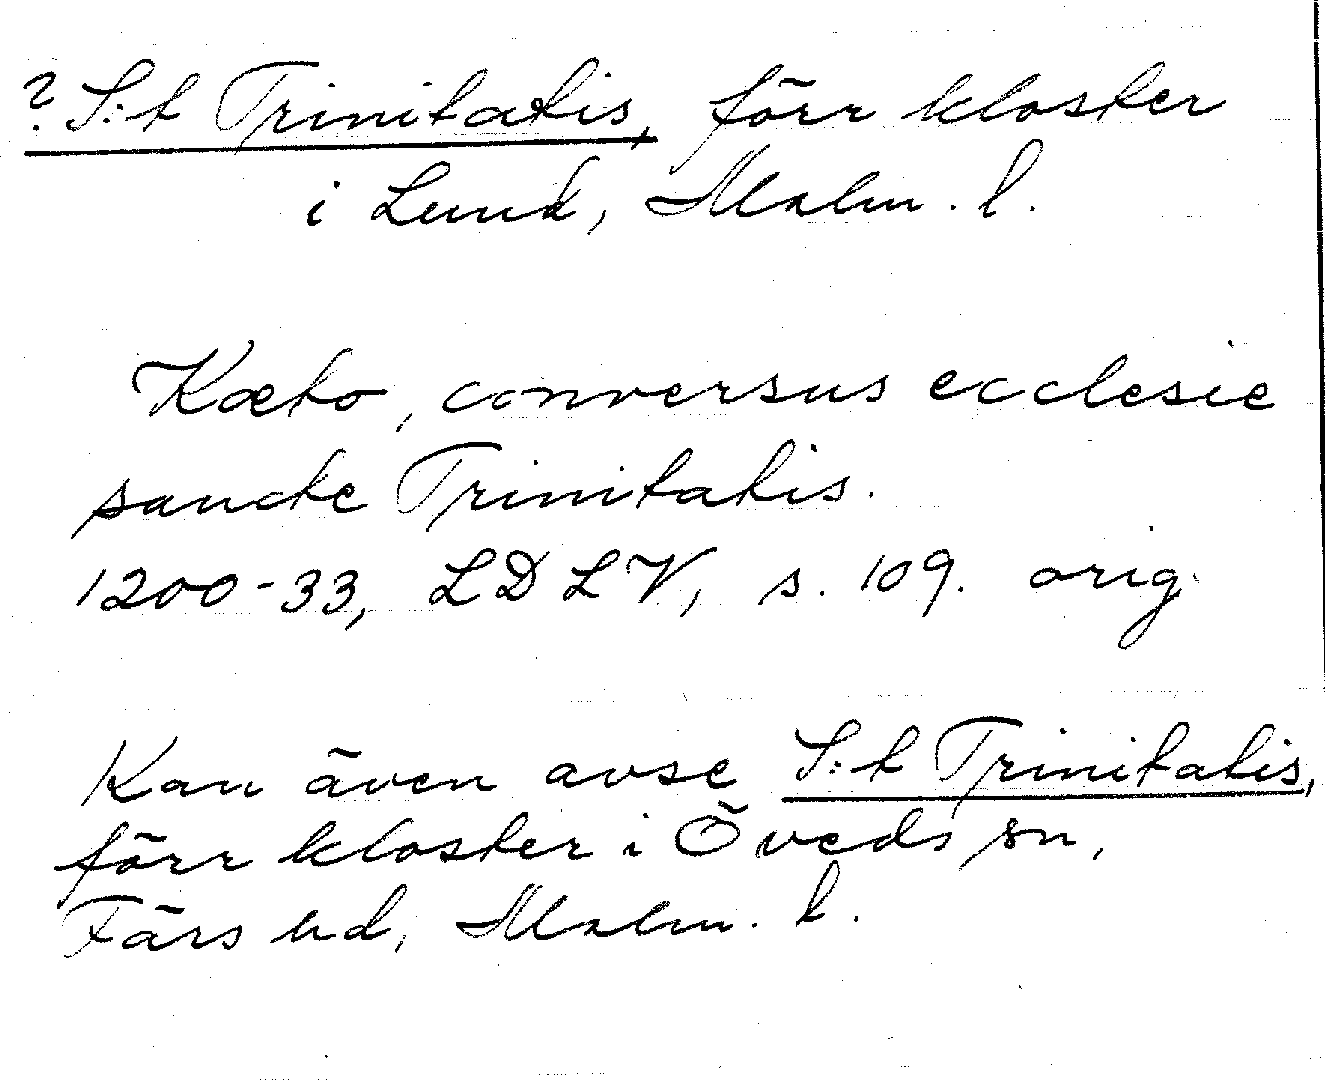 ? S:t Trinitatis, förr kloster
i Lund, Malm. l.
Kæto, conversus ecclesie
sancte Trinitatis.
1200-33, LDLV, s. 109. orig.
Kan även avse S:t Trinitatis,
förr kloster i Öveds sn,
Färs hd, Malm. l.